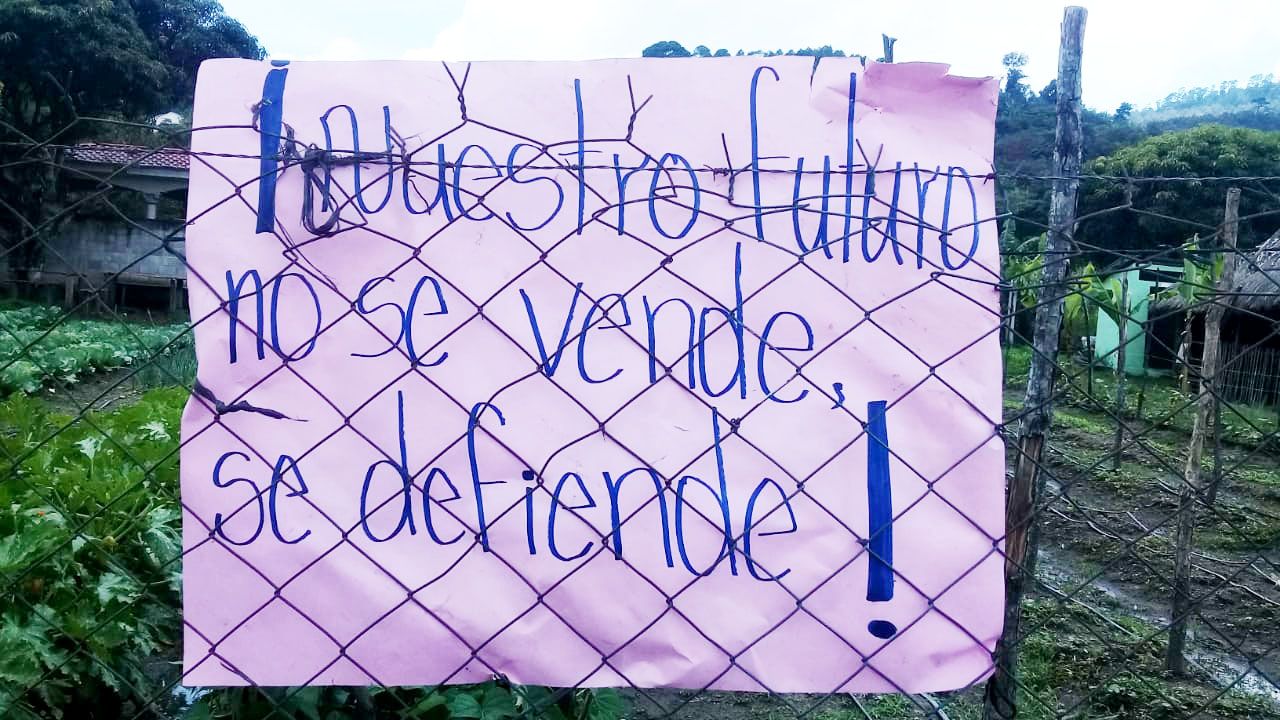 ¡Nuestro futuro
no se vende,
se defiende!